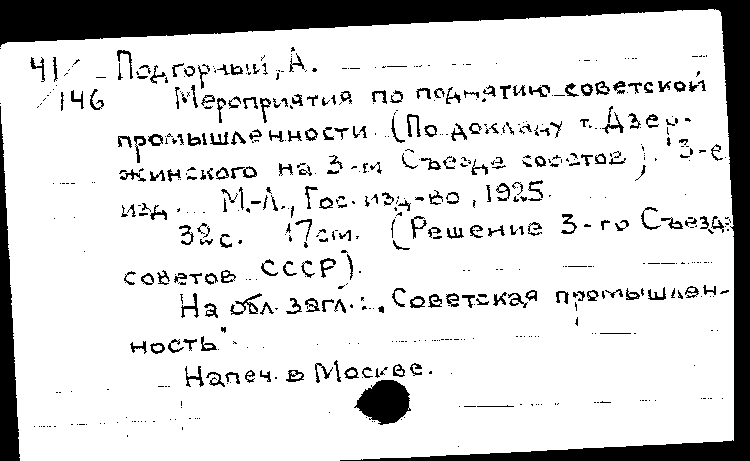 41/146 Подгорный, А.
Мероприятия по поднятию советской
промышленности (По докладу т. Дзер-
жинского на 3-м Съезде советов). 3-е
изд. М.-Л., Гос. изд-во, 1925.
32 с. 17 см. (Решение 3-го Съезда
советов СССР).
На обл. загл.: „Советская промышлен-
ность".
Напеч. в Москве.